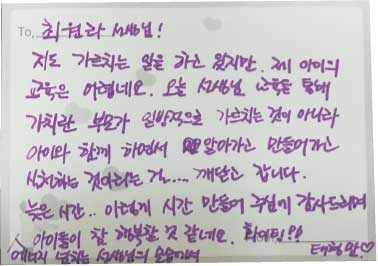 To. 최원라 선생님!
저도 가르치는 일을 하고 있지만. 제 아이의
교육은 어렵네요. 오늘 선생님 교육을 통해
가치란 부모가 일방적으로 가르치는 것이 아니라
아이와 함께 하면서 알아가고 만들어가고
실천하는 것이라는 걸.... 깨닫고 갑니다.
늦은 시간.. 이렇게 시간 만들어 주심에 감사드리며
아이들이 참 행복할 것 같네요. 화이팅!!
에너지 넘치는 선생님의 모습에서